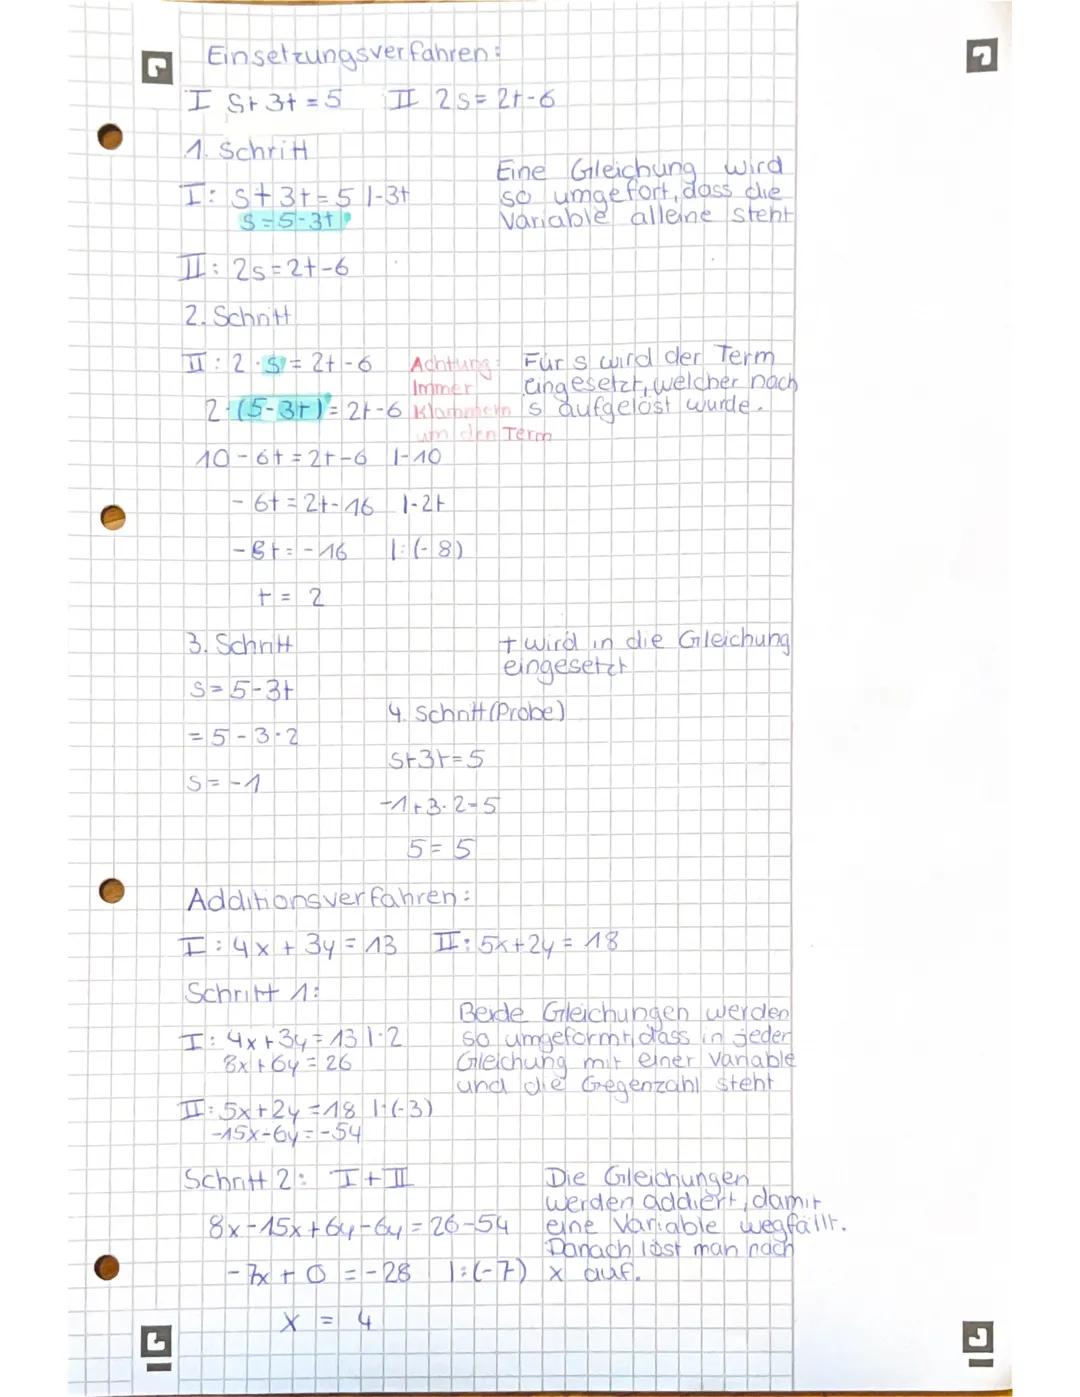 Einsetzungsverfahren:
I S+3t=5 II 2s=2t-6
1. Schritt
Eine Gleichung wird
I: S+3t=5 |-3t
so umgefort, dass die
S=5-3t
Variable alleine steht
II: 2s=2t-6
2. Schritt
II: 2·S=2t-6
Achtung:
Für s wird der Term
Immer
eingesetzt, welcher nach
2·(5-3t)=2t-6
Klammern
s aufgelöst wurde.
um den Term
10-6t=2t-6 |-10
-6t=2t-16 |-2t
-8t=-16 |:(-8)
t=2
3. Schritt
t wird in die Gleichung
eingesetzt
S=5-3t
4. Schritt (Probe)
=5-3·2
S+3t=5
S=-1
-1+3·2=5
5=5
Additionsverfahren:
I: 4x+3y=13 II: 5x+2y=18
Schritt 1:
Beide Gleichungen werden
I: 4x+3y=13 |·2
so umgeformt, dass in jeder
8x+6y=26
Gleichung mit einer Variable
und die Gegenzahl steht
II: 5x+2y=18 |·(-3)
-15x-6y=-54
Schritt 2: I+II
Die Gleichungen
werden addiert, damit
8x-15x+6y-6y=26-54
eine Variable wegfällt.
Danach löst man nach
-7x+0=-28 |:(-7)
x auf.
x=4